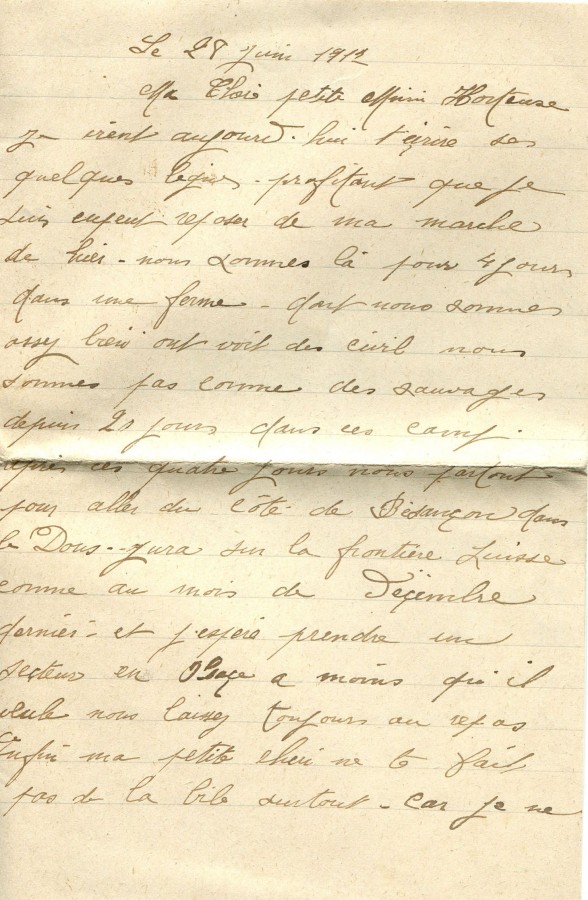 Le 28 Juin 1917
Ma Cheri petite Mimi Hortense
je vient aujourd'hui t'ecrire ses
quelques lignes - profitant que je
suis enpeut reposer de ma marche
de hier - nous sommes là pour 4 jours
dans une ferme - dont nous sommes
assez bien ont voit des civil nous
sommes pas comme des sauvages
depuis 21 jours dans ces camp.
après ces quatre jours nous partont
pour aller du côté de Besançon dans
le Doubs - Jura sur la frontière Suisse
comme au mois de Décembre
dernier - et j'espère prendre un
secteur en Alsace a moins qu'il
veule nous laisser toujours au repos
Enfin ma petite cheri ne te fait
pas de la bile surtout - car je ne